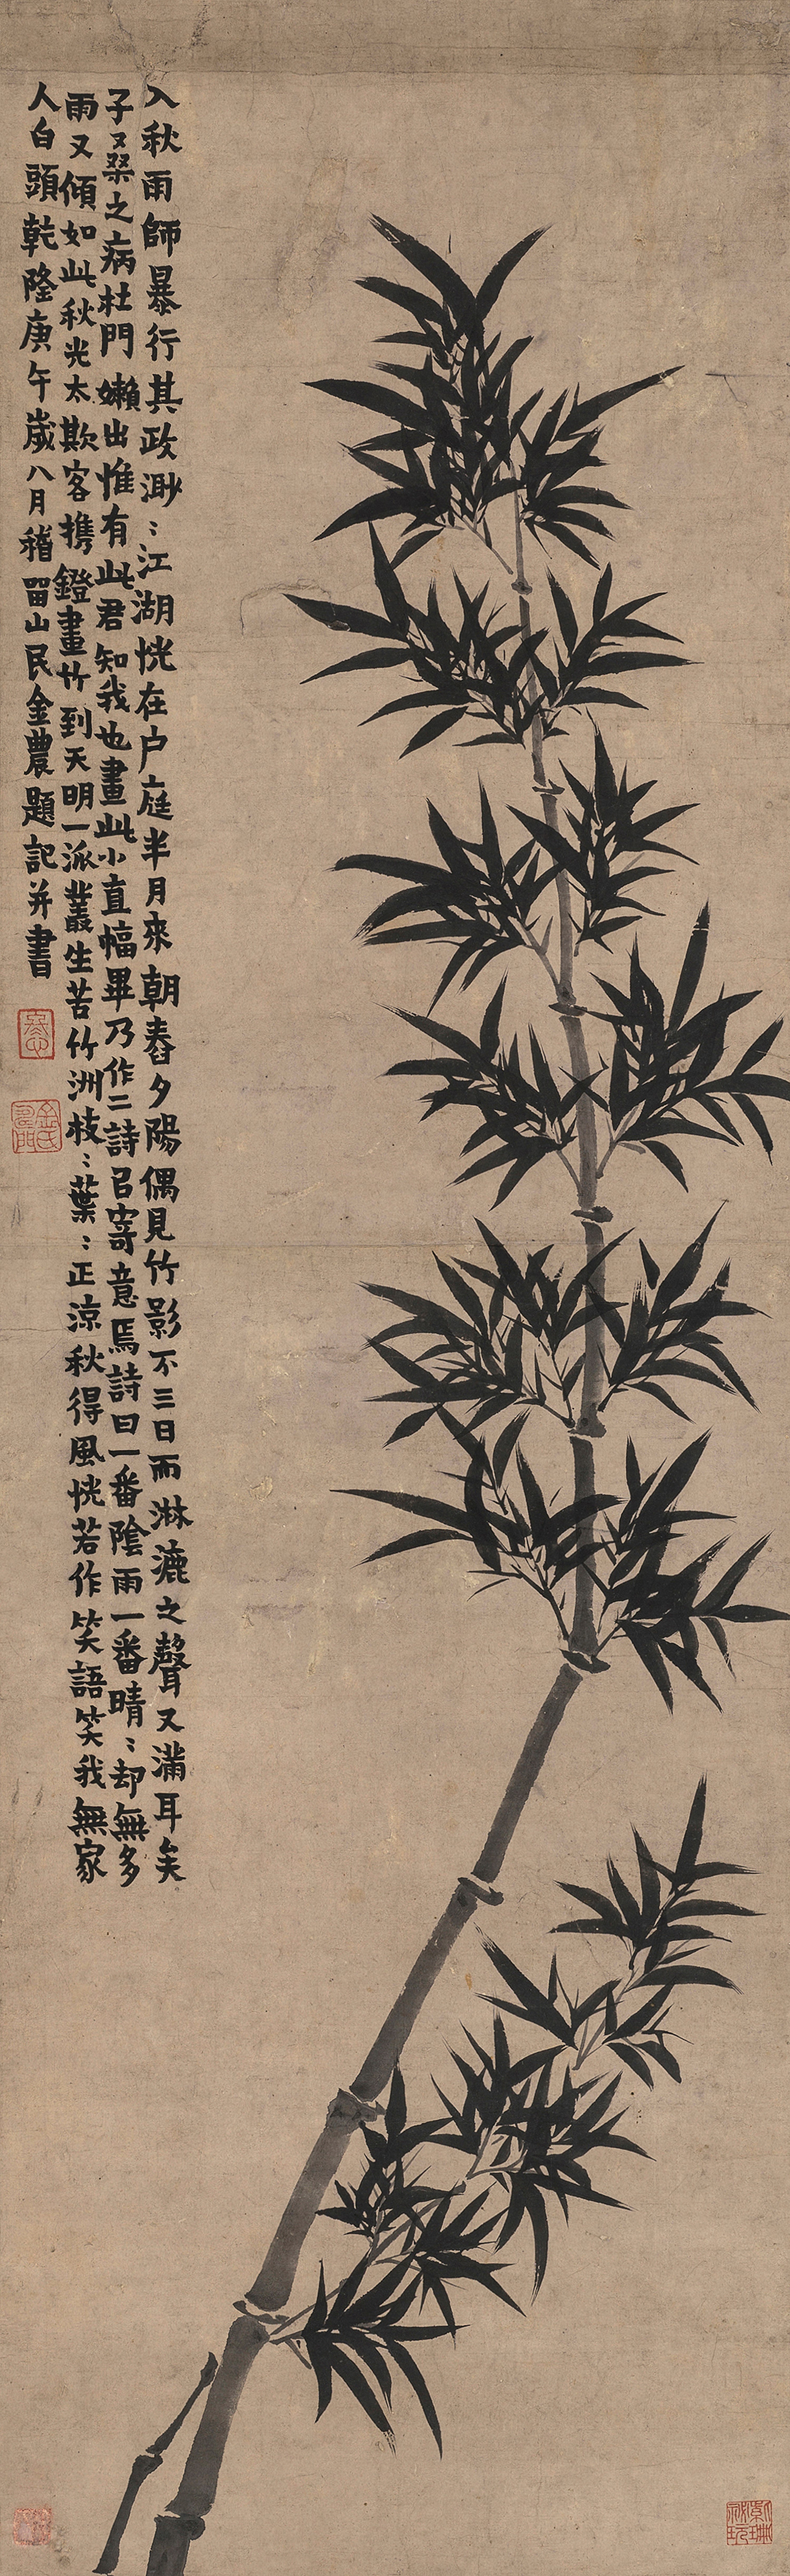 入秋雨師暴行其政渺〻江湖恍在户庭半月來朝舂夕陽偶見竹影不三日而淋漉之聲又滿耳矣
子桑之病杜門嬾出惟有此君知我也畫此小直幅畢乃作二詩㠯寄意焉詩曰一番陰雨一番晴〻却無多
雨又傾如此秋光太欺客携鐙畫竹到天明一派叢生苦竹洲枝〻葉〻正涼秋得風恍若作笑語笑我無家
人白頭乾隆庚午歲八月稽留山民金農題記并書
金氏壽門